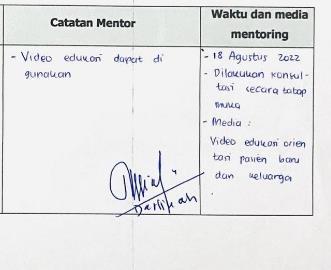 Catatan Mentor
Waktu dan media
mentoring
- Video edukasi dapat di
gunakan
- 18 Agustus 2022
- Dilakukan konsul-
tasi secara tatap
muka
- Media :
Video edukasi orien
tasi pasien baru
dan keluarga